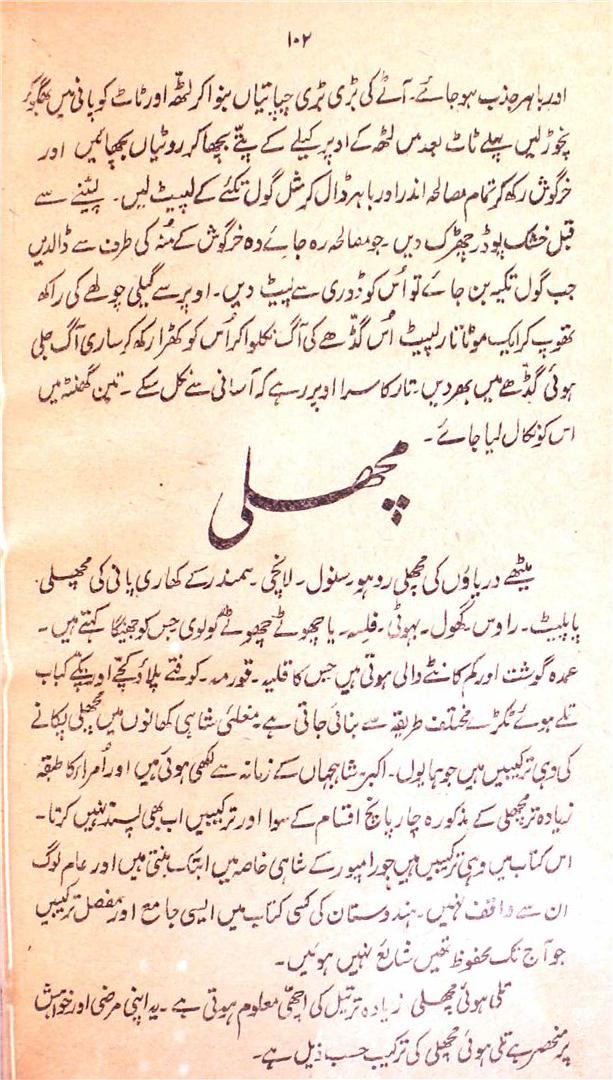 ۱۰۲
اور باہر جذب ہو جائے۔ آٹے کی بڑی بڑی چپاتیاں بنوا کر لٹھ اور ٹاٹ کو پانی میں بھگو کر
نچوڑ لیں پہلے ٹاٹ بعد میں لٹھ کے اوپر کیلے کے پتے بچھا کر روٹیاں بچھائیں اور
خرگوش رکھ کر تمام مصالحہ اندر اور باہر ڈال کر مثل گول تکئے کے لپیٹ لیں۔ لپٹنے سے
قبل خشک پوڈر چھڑک دیں۔ جو مصالحہ رہ جائے وہ خرگوش کے منہ کی طرف سے ڈالدیں
جب گول تکیہ بن جائے تو اُس کو ڈوری سے لپیٹ دیں۔ اوپر سے گیلی چولھے کی راکھ
تھوپ کر ایک موٹا تار لپیٹ اُس گڈھے کی آگ نکلوا کر اُس کو کھڑا رکھ کر ساری آگ جلی
ہوئی گڈھے میں بھر دیں۔ تار کا سرا اوپر رہے کہ آسانی سے نکل سکے۔ تین گھنٹہ میں
اس کو نکال لیا جائے۔
مچھلی
میٹھے دریاؤں کی مچھلی روہو۔ سنول۔ لانچی۔ سمندر کے کھاری پانی کی مچھلی
پاپلیٹ۔ راوس۔ گھول۔ بہوٹی۔ فلسہ۔ یا چھوٹے چھوٹے کولوی جس کو جھینگا کہتے ہیں۔
عمدہ گوشت اور کم کانٹے والی ہوتی ہیں جس کا قلیہ۔ قورمہ۔ کوفتے پلاؤ کچے اور پکے کباب
تلے ہوئے ٹکڑے مختلف طریقہ سے بنائی جاتی ہے۔ مغلئی شاہی کھانوں میں مچھلی پکانے
کی وہی ترکیبیں ہیں جو ہمایوں۔ اکبر۔ شاہجہاں کے زمانہ سے لکھی ہوئی ہیں اور اُمراء کا طبقہ
زیادہ تر مچھلی کے مذکورہ چار پانچ اقسام کے سوا اور ترکیبیں اب بھی پسند نہیں کرتا۔
اس کتاب میں وہی ترکیبیں ہیں جو رامپور کے شاہی خاصہ میں ابتک بنتی ہیں اور عام لوگ
ان سے واقف نہیں۔ ہندوستان کی کسی کتاب میں ایسی جامع اور مفصل ترکیبیں
جو آج تک محفوظ تھیں شایع نہیں ہوئیں۔
تلی ہوئی مچھلی زیادہ تر تیل کی اچھی معلوم ہوتی ہے۔ یہ اپنی مرضی اور خواہش
پر منحصر ہے تلی ہوئی مچھلی کی ترکیب حسب ذیل ہے۔